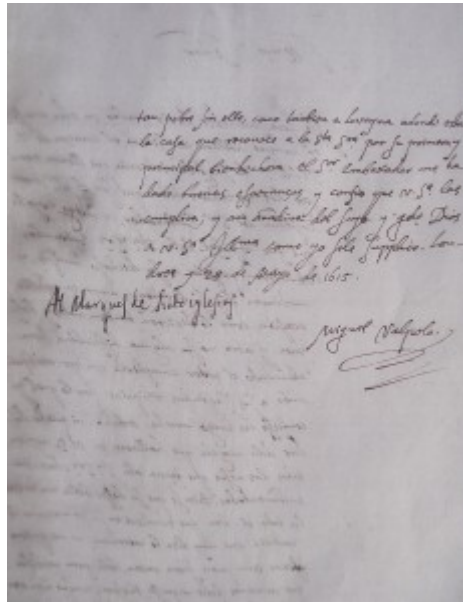 tan pobre sin ello, como tambien a Lovayna adonde esta
la casa que reconoce a la sta sra por su primera y
principal bienhechora. el Sor Embaxador me ha
dado buenas esperanças, y confio que V. Sa las
cumplira, y aun añadira del suyo y gde Dios
a V. Sa Illma como yo sele supplico. Lon-
dres y de Mayo de 1615.
Al Marques de Siete iglesias
Miguel Valpolo.